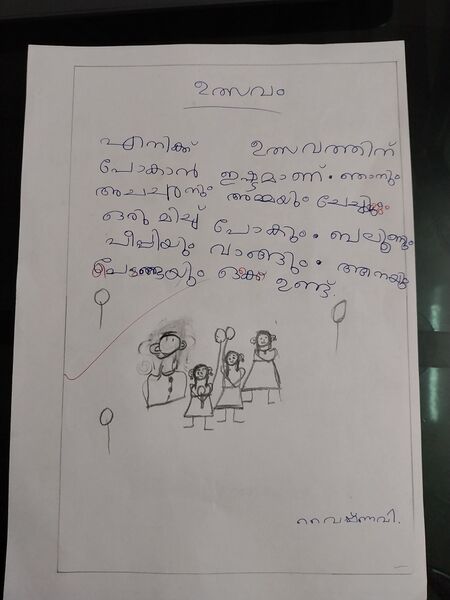 ഉത്സവം
എനിക്ക് ഉത്സവത്തിന്
പോകാൻ ഇഷ്ടമാണ്. ഞാനും
അച്ഛനും അമ്മയും ചേച്ചിയും
ഒരുമിച്ച് പോകും. ബലൂണും
പീപ്പിയും വാങ്ങും. ആനയും
ഒക്കെ ഉണ്ട്.
വൈഷ്ണവി.